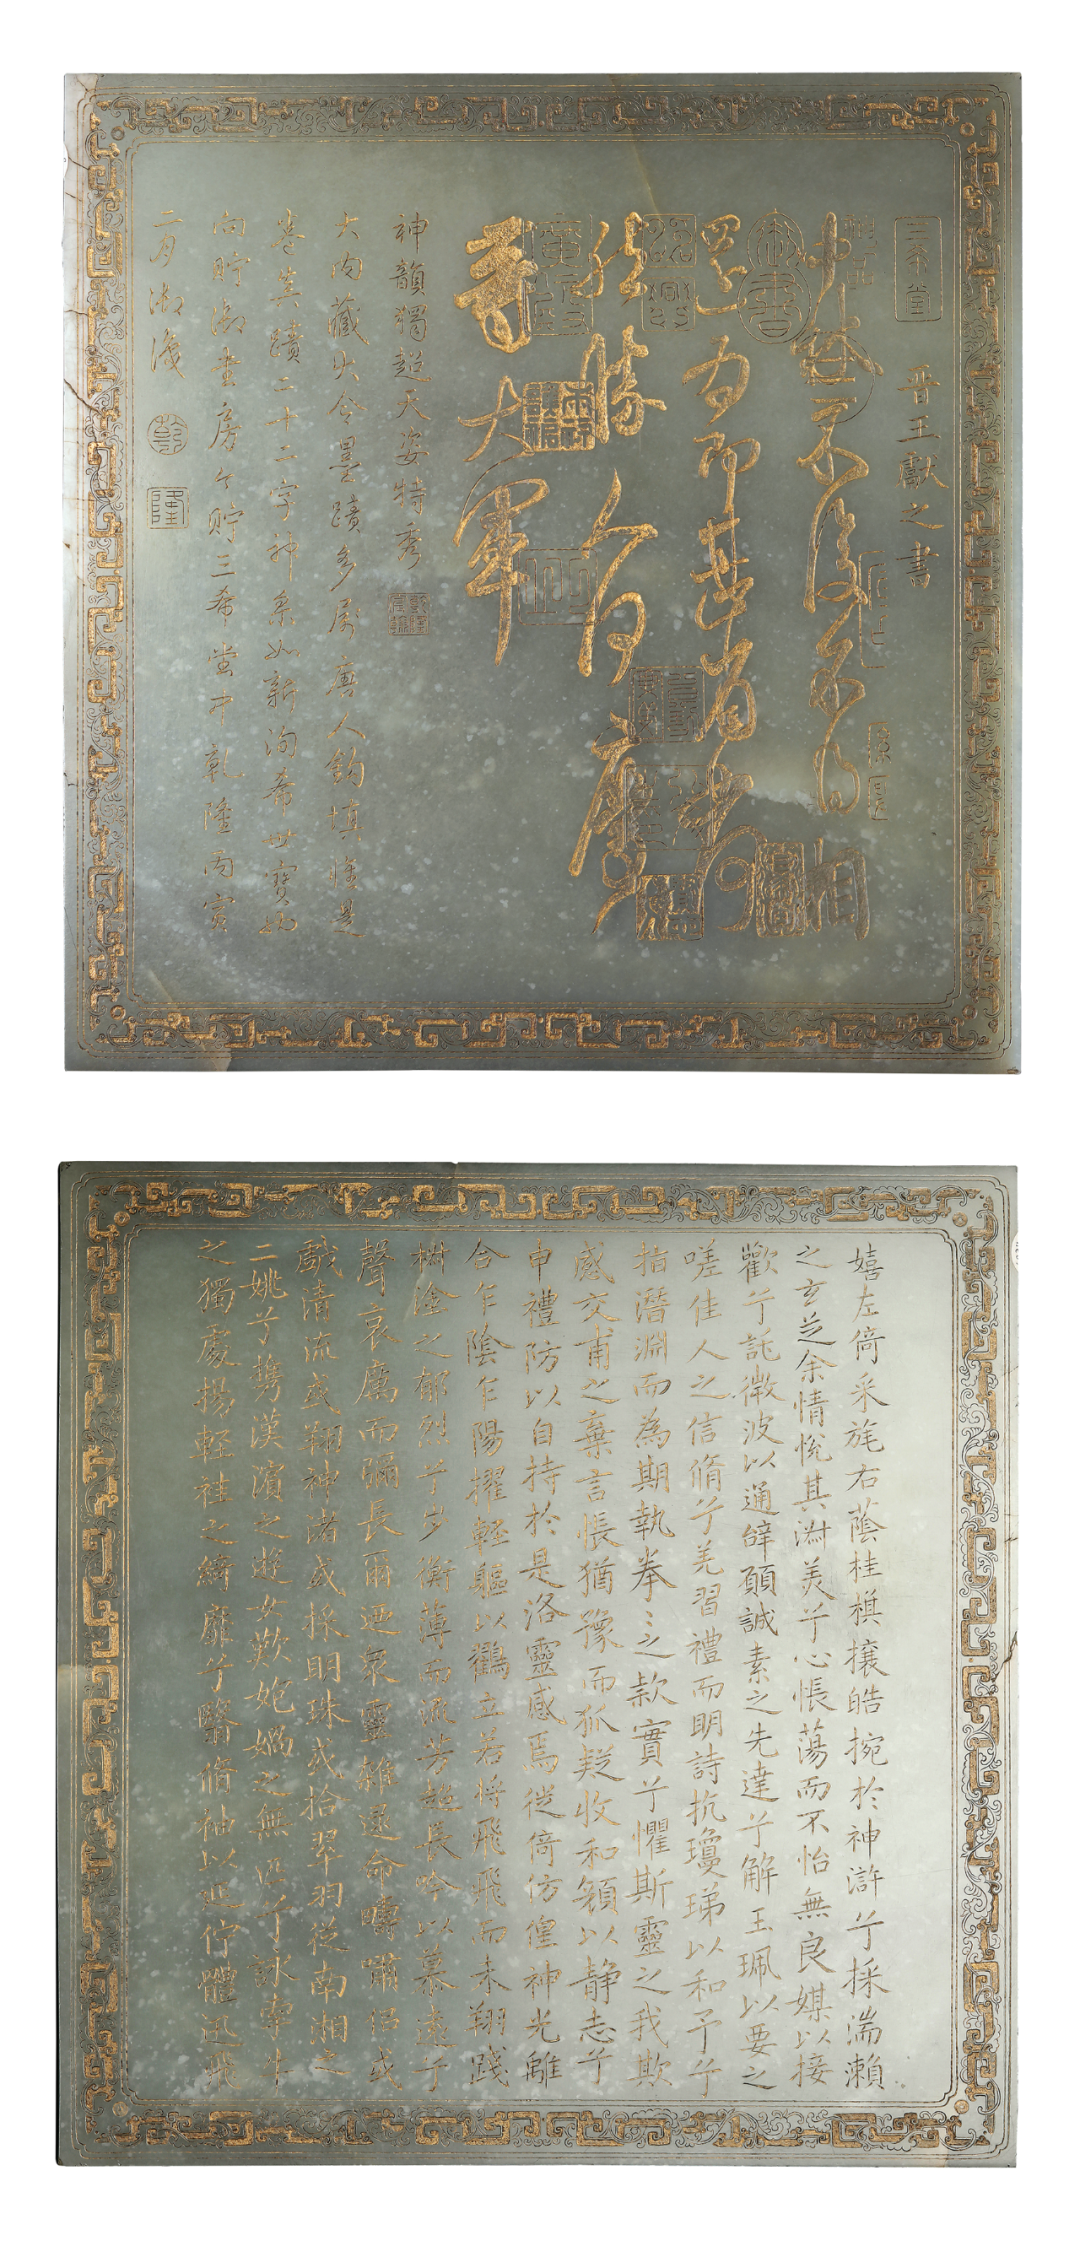 三希堂
晉王獻之書
中秋不復不得相
還為即甚省如何
然勝人何慶
等大軍
神韻獨超天姿特秀
乾隆宸翰
大内藏大令墨蹟多屬唐人鈎填惟是
卷真蹟二十二字神采如新洵希世寶也
向貯御書房今貯三希堂中乾隆丙寅
二月御識
乾
隆
御書
嬉左倚采旄右蔭桂棋攘皓捥於神滸兮採湍瀨
之玄芝余情悅其淑美兮心悵蕩而不怡無良媒以接
歡兮託微波以通辭願誠素之先達兮解玉珮以要之
嗟佳人之信脩兮羌習禮而明詩抗瓊珶以和予兮
指潛淵而為期執拳ミ之款實兮懼斯靈之我欺
感交甫之棄言悵猶豫而狐疑收和顏以静志兮
申禮防以自持於是洛靈感焉徙倚仿偟神光離
合乍陰乍陽擢輕軀以鶴立若将飛飛而未翔踐
椒塗之郁烈兮步衡薄而流芳超長吟以慕遠兮
聲哀厲而彌長爾迺衆靈雜遝命疇嘯侣或
戲清流或翔神渚或採明珠或拾翠羽從南湘之
二姚兮攜漢濱之遊女歎妑媧之無匹兮詠牽牛
之獨處揚輕袿之綺靡兮翳脩袖以延佇體迅飛